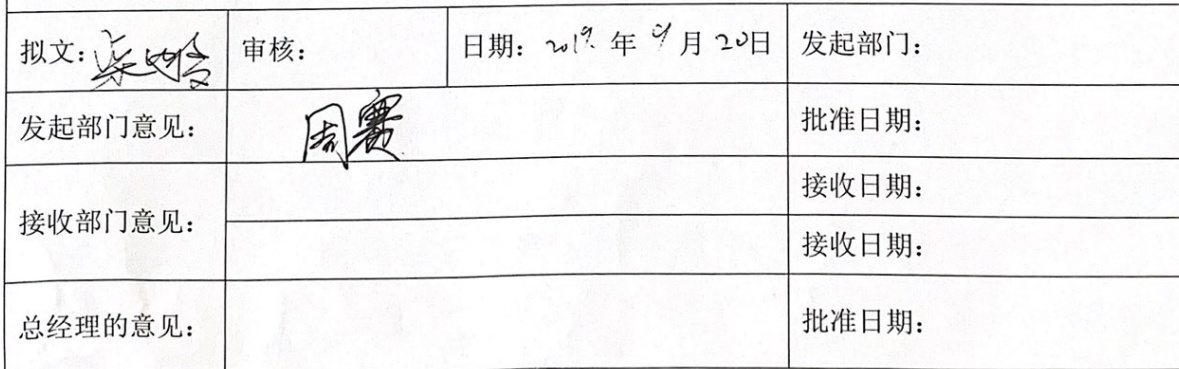 拟文:
审核:
日期: 2019. 年 9 月 20日
发起部门:
发起部门意见:
周赛
批准日期:
接收部门意见:
接收日期:
接收日期:
总经理的意见:
批准日期: